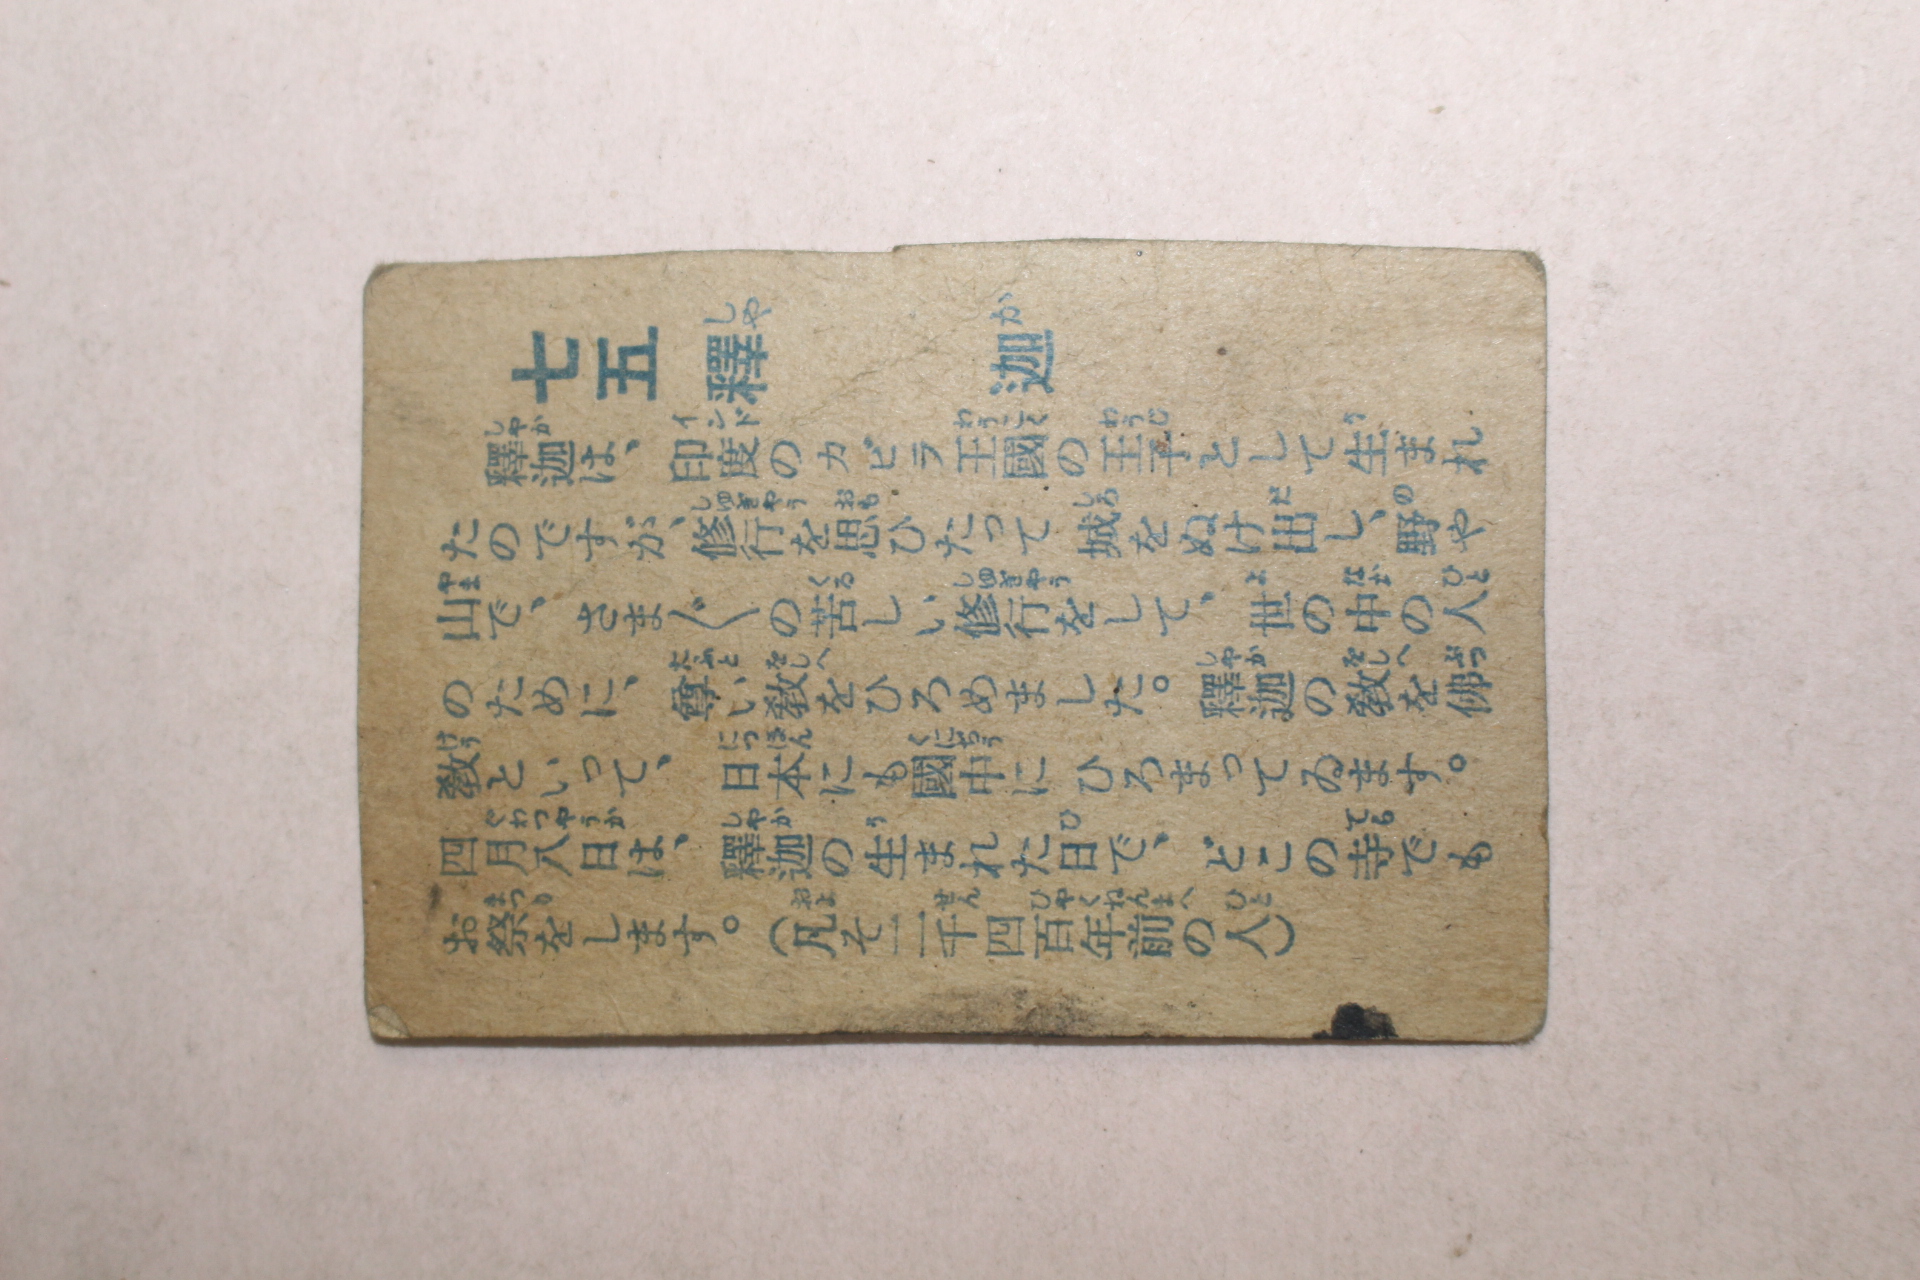 七五 釋迦
釋迦は、印度のカピラ王國の王子として生まれ
たのですが、修行を思ひたつて城をぬけ出し、野や
山で、さま〴〵の苦しい修行をして、世の中の人
のために、尊い敎をひろめました。釋迦の敎を佛
敎といつて、日本にも國中にひろまつてゐます。
四月八日は、釋迦の生まれた日で、どこの寺でも
お祭をします。（凡そ二千四百年前の人）